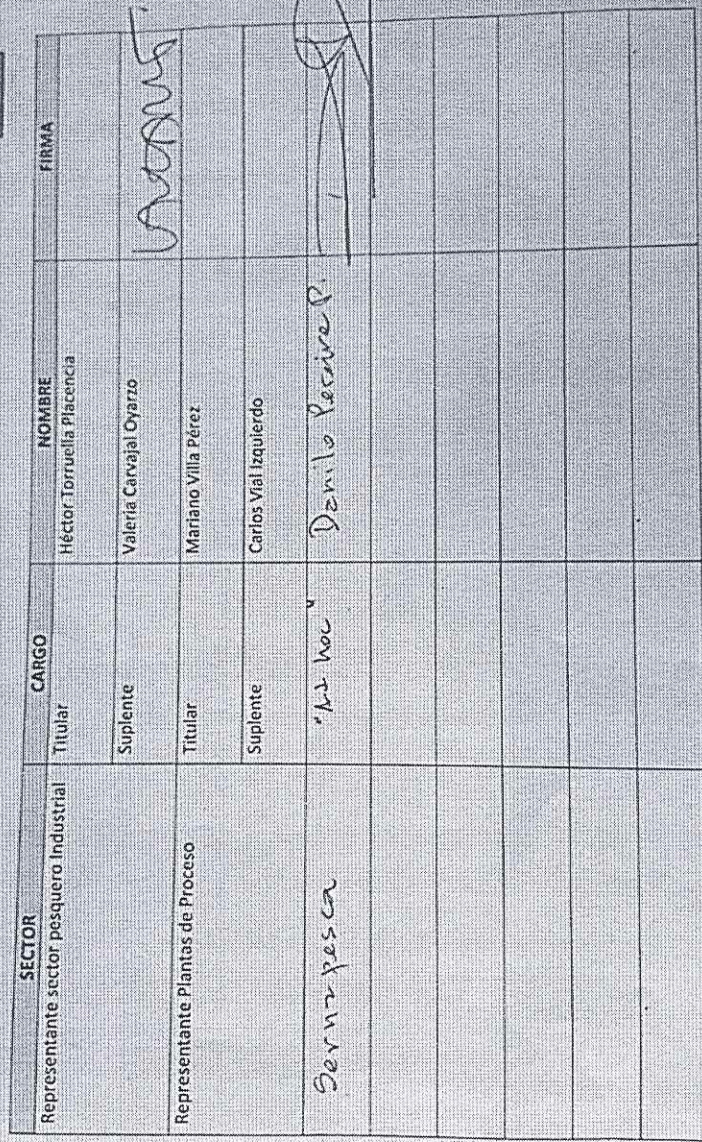 SECTOR CARGO NOMBRE FIRMA
Representante sector pesquero Industrial Titular Héctor Torruella Placencia
Suplente Valeria Carvajal Oyarzo
Representante Plantas de Proceso Titular Mariano Villa Pérez
Suplente Carlos Vial Izquierdo
Sernapesca "Ad hoc" Danilo P.